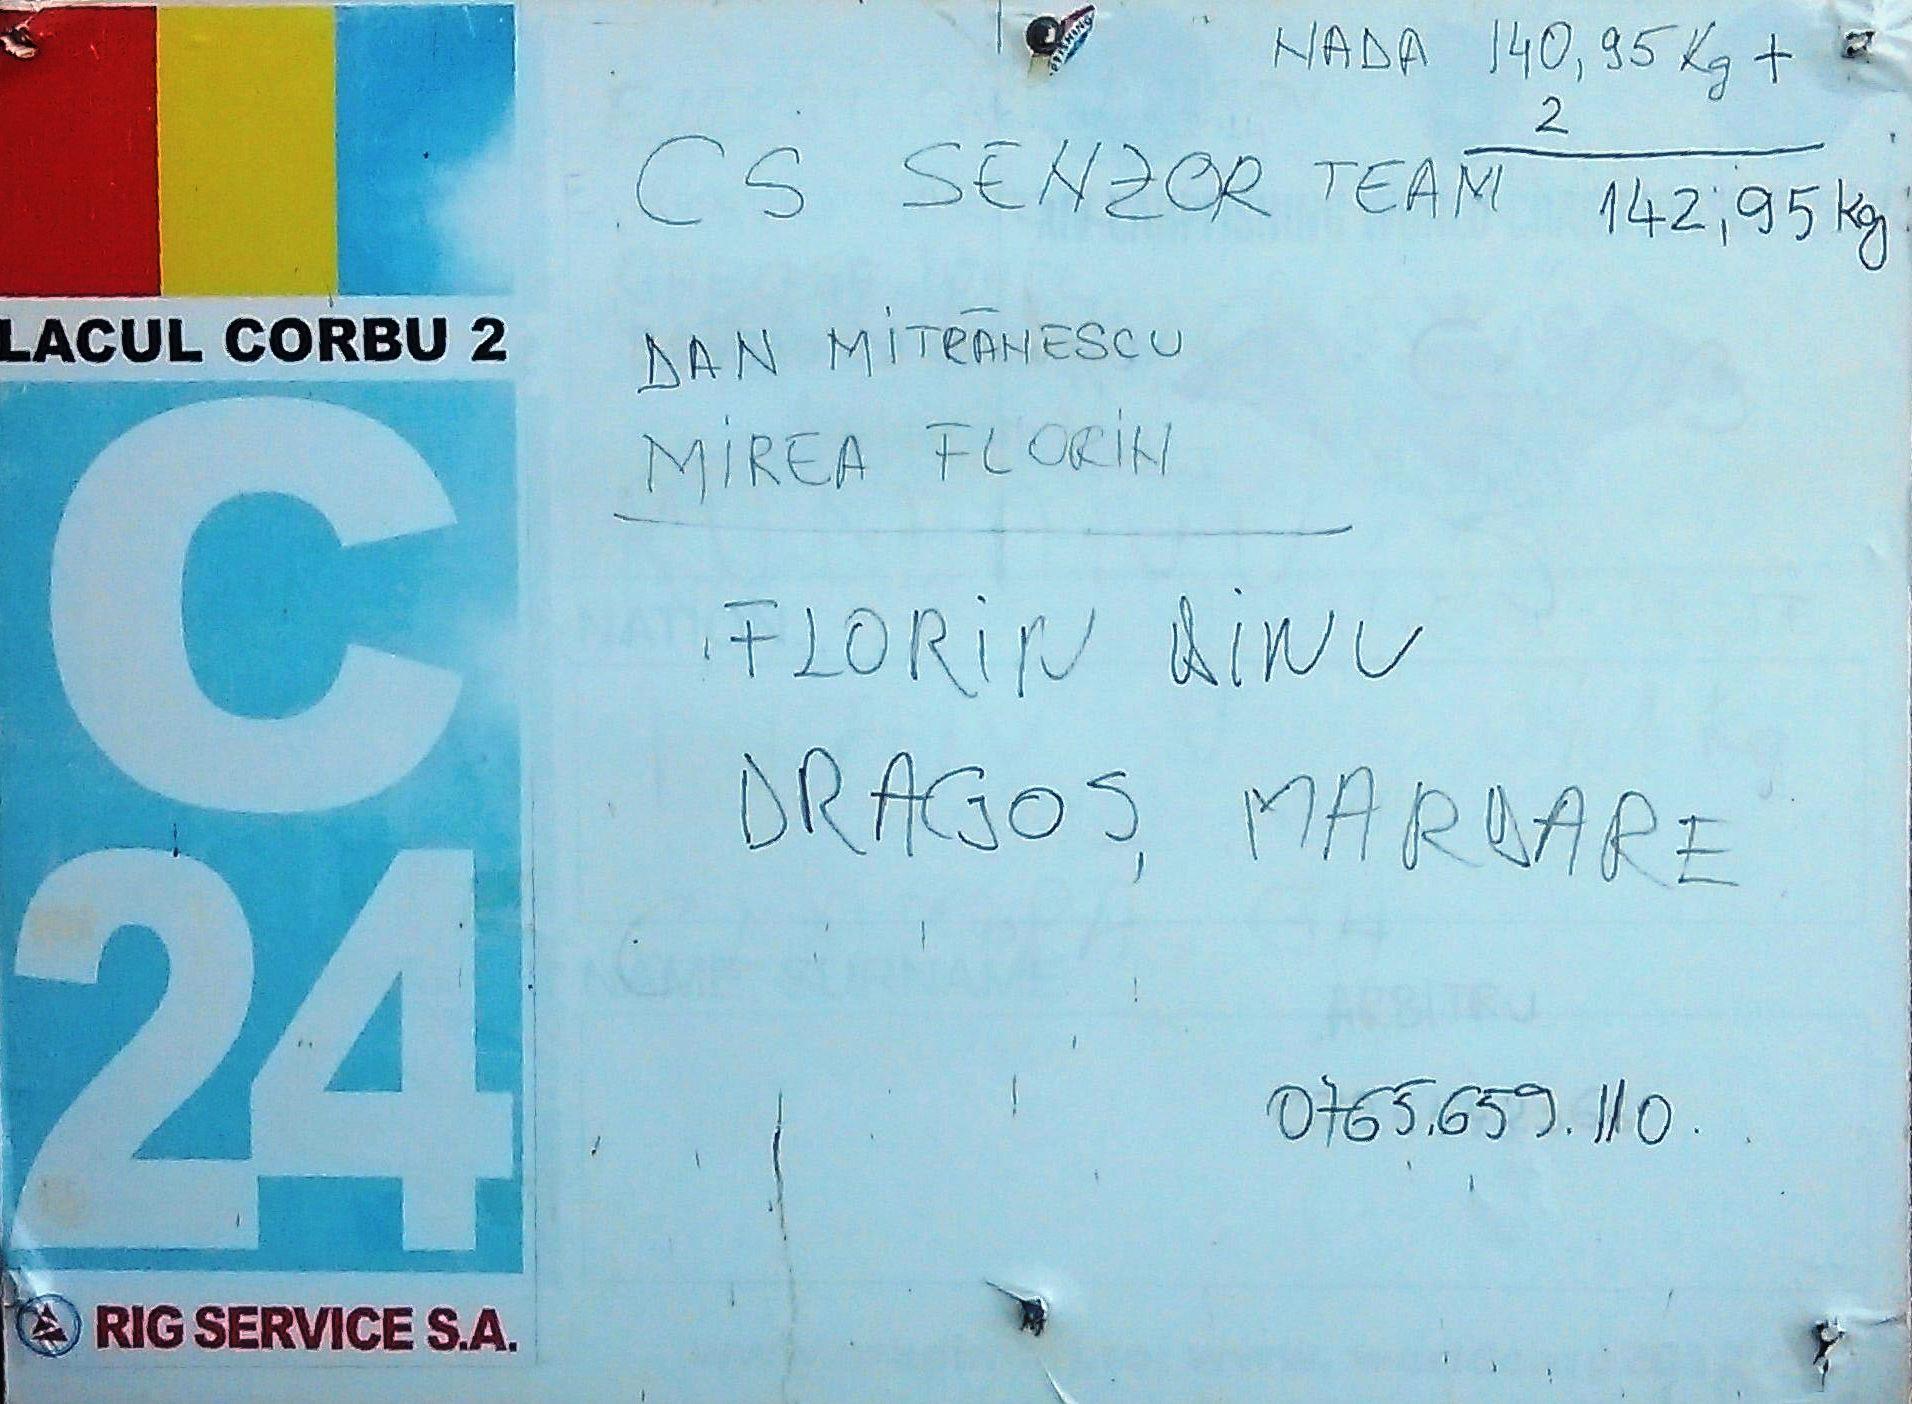 NADA 140,95 Kg +
2
142,95 kg
CS SENZOR TEAM
DAN MITRĂNESCU
MIREA FLORIN
FLORIN DINU
DRAGOȘ MARDARE
0765.659.110.
LACUL CORBU 2
C
24
RIG SERVICE S.A.